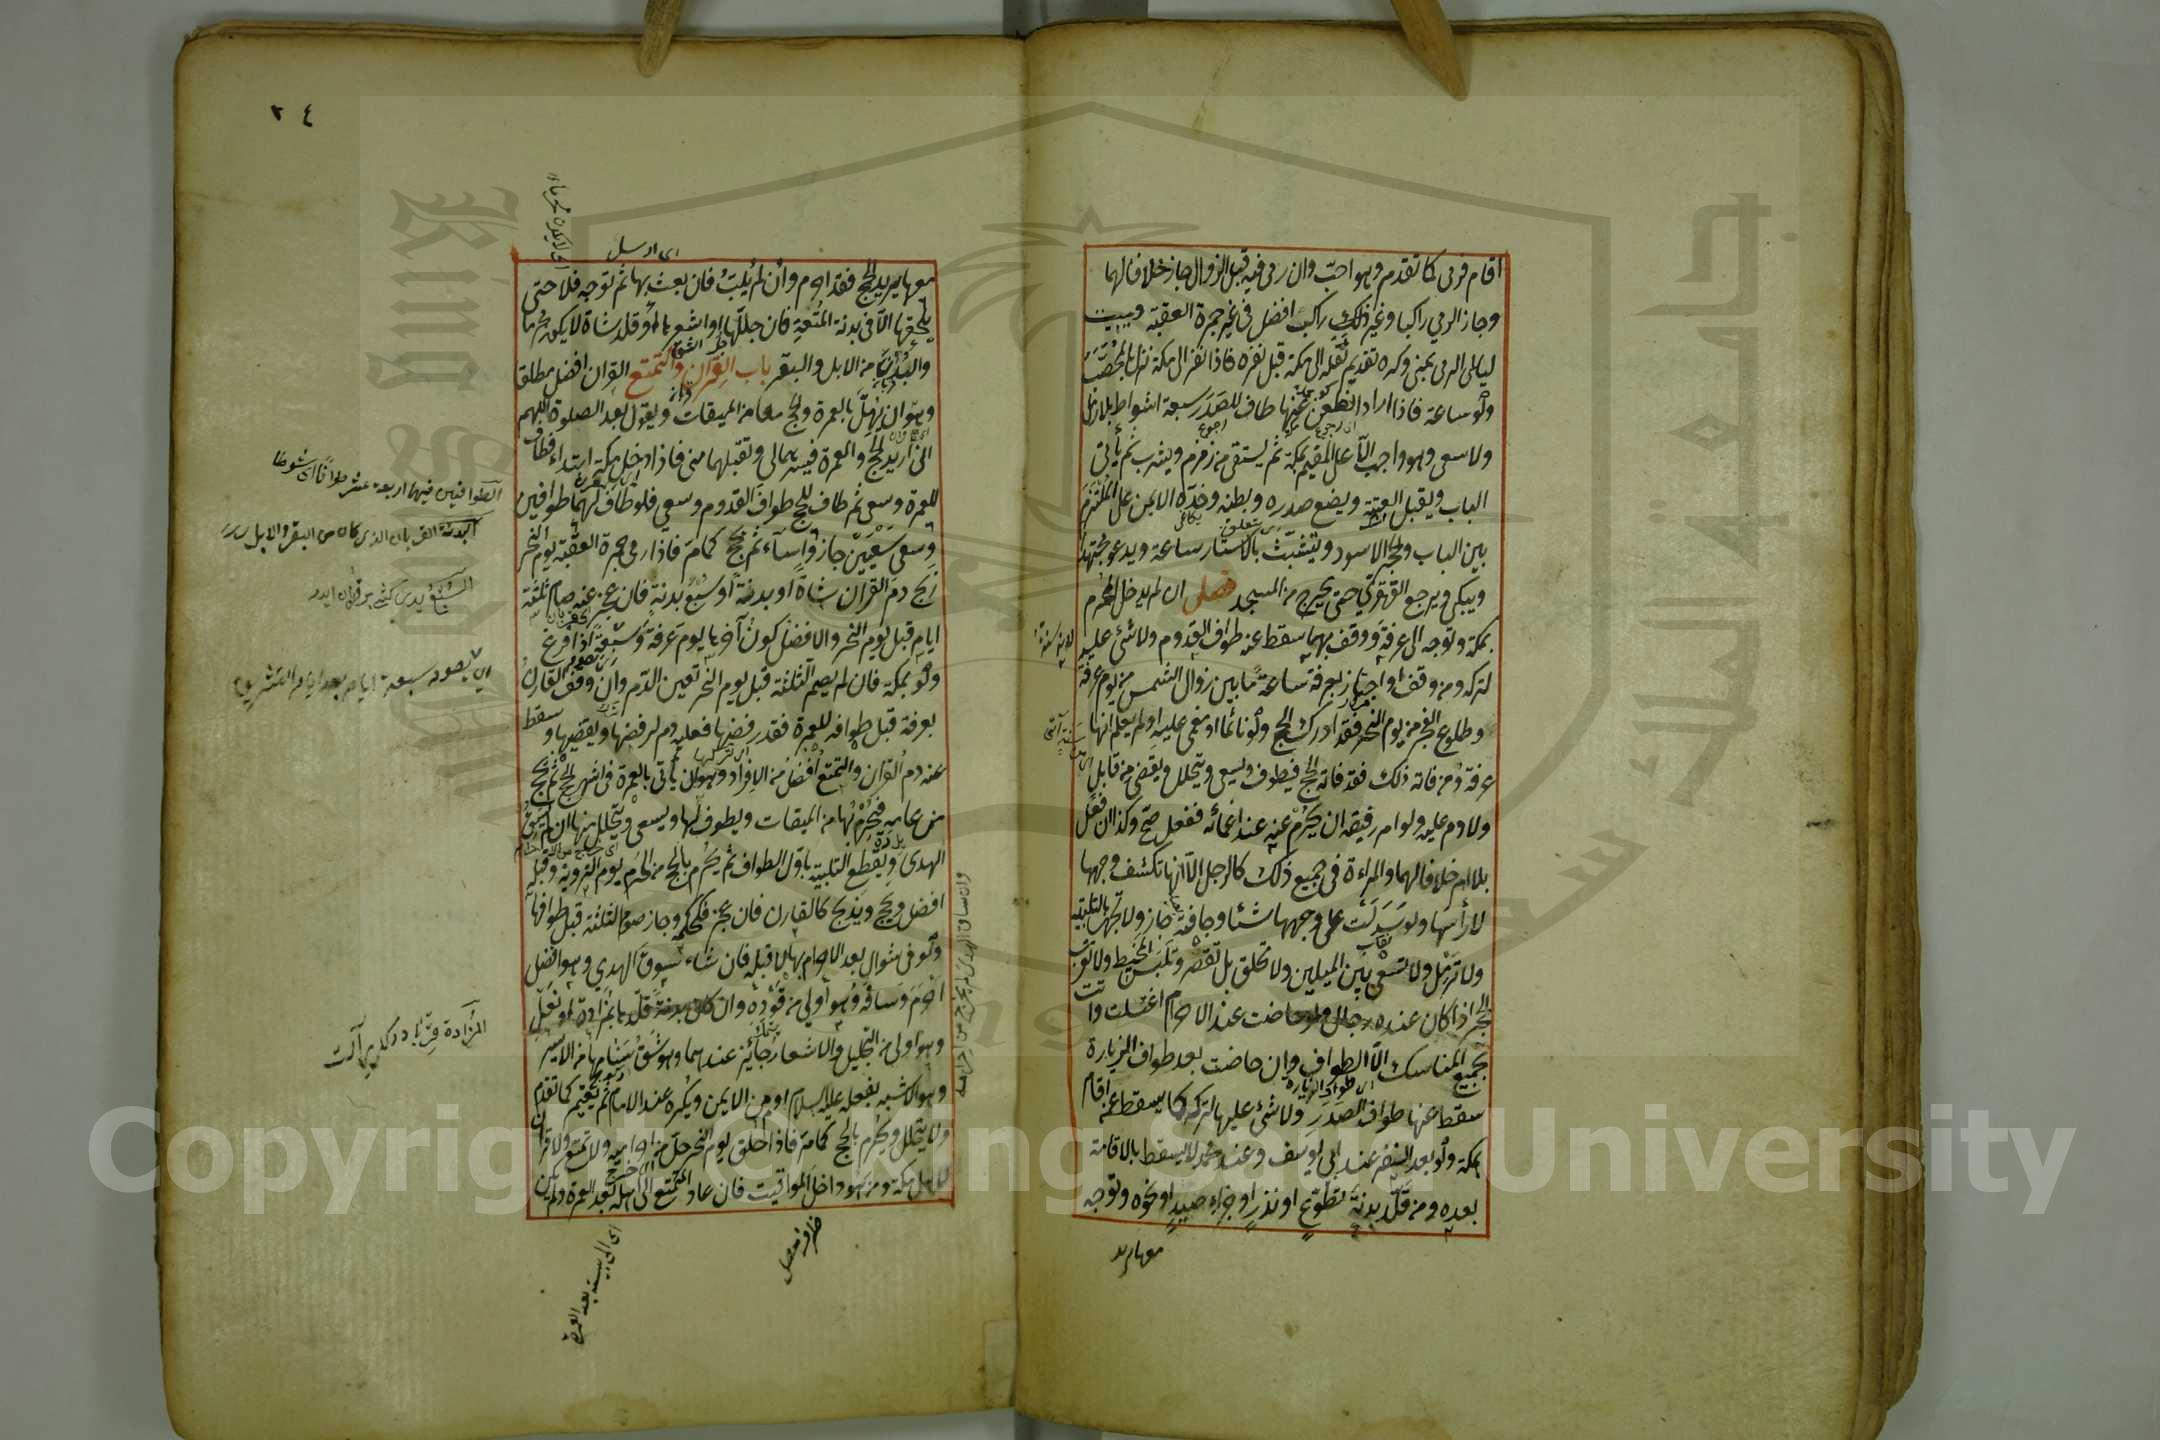 اقام فرمى كما تقدم وهو احبّ وان رمى فيه قبل الزوال جاز خلافا لهما
وجاز الرمي راكبا وغير ذلك راكب افضل فى غير جمرة العقبة ويبيت
ليالى الرمى بمنى وكره تقديم ثقله الى مكة قبل نفره فاذا نفر الى مكة نزل بالمحصّب
ولو ساعة فاذا اراد الظعن عنها طاف للصدر سبعة اشواط بلا رمل
ولا سعى وهو واجب الّا على المقيم بمكة ثم يستقى من زمزم ويشرب ثم يأتى
الباب ويقبل العتبة ويضع صدره وبطنه وخدّه الايمن على الملتزم
بين الباب والحجر الاسود ويتشبّث بالاستار ساعة ويدعو مجتهدا
ويبكى ويرجع القهقرى حتى يخرج من المسجد فصل ان لم يدخل المحرم
بمكة وتوجه الى عرفة ووقف بهما سقط عنه طواف القدوم ولا شئ عليه
لتركه ومن وقف او اجتاز بعرفة ساعة ما بين زوال الشمس من يوم عرفة
وطلوع الفجر من يوم النحر فقد ادرك الحج ولو نائما او مغمى عليه او لم يعلم انها
عرفة ومن فاته ذلك فقد فاته الحج فيطوف ويسعى ويتحلل ويقضى من قابل
ولا دم عليه ولو امر رفيقه ان يحرم عنه عند اغمائه ففعل صحّ وكذا ان فعل
بلا امر خلافا لهما والمراءة فى جميع ذلك كالرجل الّا انها تكشف وجهها
لا رأسها ولو سدلت على وجهها شئا وجافته جاز ولا تجهر بالتلبية
ولا ترمل ولا تسعى بين الميلين ولا تحلق بل تقصر وتلبس المخيط ولا تقرب
الحجر اذا كان عنده رجال ولو حاضت عند الاحرام اغتسلت واتت
بجميع المناسك الّا الطواف وان حاضت بعد طواف الزيارة
سقط عنها طواف الصدر ولا شئ عليها لتركه كما يسقط عن من اقام
بمكة ولو بعد النفر عند ابى يوسف وعند محمد لا يسقط بالاقامة
بعده ومن قلّد بدنة تطوّع او نذر او جزاء صيد او نحوه وتوجه
معها يريد
٢٤
اى ارسل
معها يريد الحج فقد احرم وان لم يلبّ فان بعث بها ثم توجه فلا حتى
يلحقها الّا فى بدنة المتعة فان جللها او اشعرها او قلد شاة لا يكون محرما
والبدن من الابل والبقر باب القران والتمتع القران افضل مطلقا
وهو ان يهلّ بالعمرة والحج معا من الميقات ويقول بعد الصلوة اللهم
انى اريد الحج والعمرة فيسرهما لى وتقبلهما منى فاذا دخل مكة ابتداء فطاف
للعمرة وسعى ثم طاف للحج طواف القدوم وسعى فلو طاف لهما طوافين
وسعى سعيين جاز واساء ثم يحج كما مر فاذا رمى جمرة العقبة يوم النحر
ذبح دم القران شاة او بدنة او سبع بدنة فان عجز عنه صام ثلثة
ايام قبل يوم النحر والافضل كون آخرها يوم عرفة وسبعة اذا فرغ
ولو بمكة فان لم يصم الثلثة قبل يوم النحر تعين الدّم وان وقف القارن
بعرفة قبل طوافه للعمرة فقد رفضها فعليه دم لرفضها ويقضيها وسقط
عنه دم القران والتمتع افضل من الافراد وهو ان يأتى بالعمرة فى اشهر الحج ثم يحج
من عامه فيحرم بها من الميقات ويطوف لها ويسعى ويتحلل منها ان لم يسق
الهدى ويقطع التلبية باوّل الطواف ثم يحرم بالحج من الحرم يوم التروية وقبله
افضل ويحج ويذبح كالقارن فان عجز فكحكمه وجاز صوم الثلثة قبل طوافها
ولو فى شوال بعد الاحرام بها لا قبله فان شاء سوق الهدى وهو افضل
احرم وساقه وهو اولى من قوده وان كان بدنة قلّدها بمزادة او نعل
وهو اولى من التجليل والاشعار جائز عندهما وهو شق سنامها من الايسر
وهو الاشبه بفعله عليه السلام او من الايمن ويكره عند الامام ثم يعتمر كما تقدم
ولا يتحلل ويحرم بالحج كما مر فاذا حلق يوم النحر حلّ من احراميه ولا تمتع ولا قران
لاهل مكة ومن هو داخل المواقيت فان عاد المتمتع الى اهله بعد العمرة ولم يكن
وان ساق الهدى لم يخرج من احرامه
اى الى بيته بعد العمرة